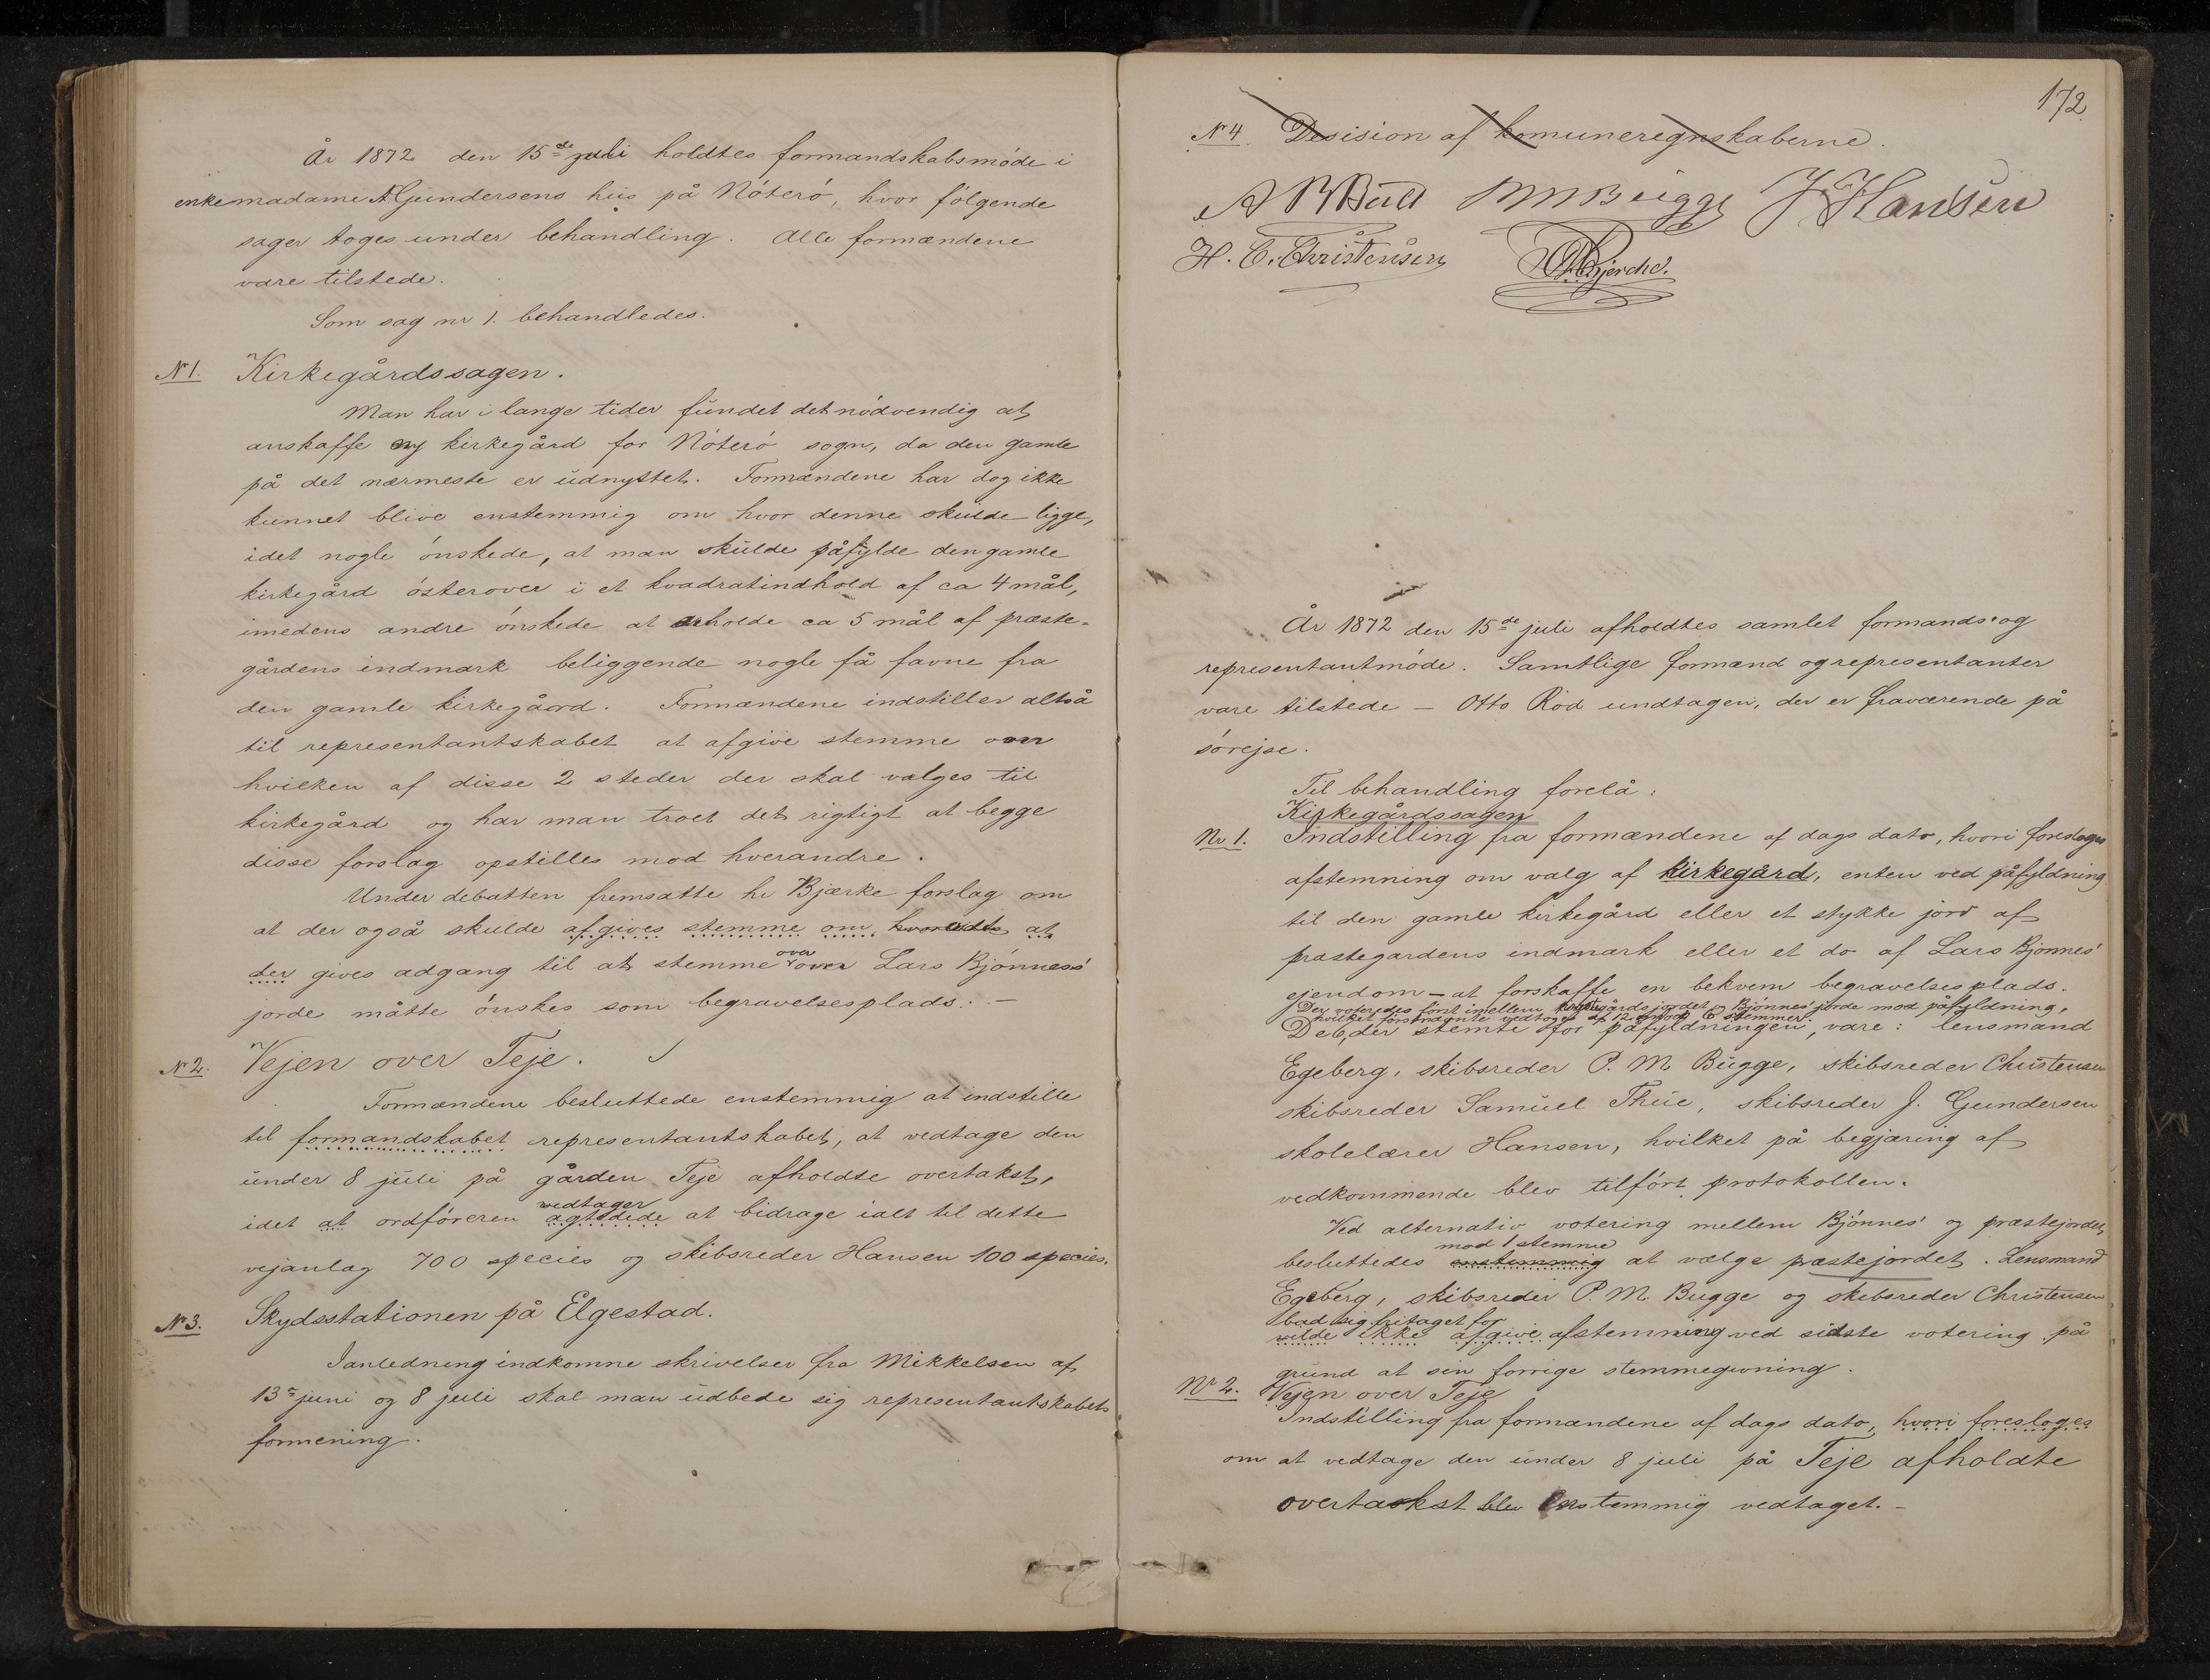 År 1872 den 15de juli holdtes formandskabsmöde i
enkemadame A Gundersens hus på Nöterö, hvor fölgende
sager toges under behandling. Alle formændene
vare tilstede.
Som sag nr 1. behandledes.
N 1. Kirkegårdssagen.
Man har i lange tider fundet det nödvendig at
anskaffe ny kirkegård for Nöterö sogn, da den gamle
på det nærmeste er udnyttet. Formændene har dog ikke
kunnet blive enstemmig om hvor denne skulde ligge,
idet nogle önskede, at man skulde påfylde den gamle
kirkegård österover i et kvadratindhold af ca 4 mål,
imedens andre önskede at erholde ca 5 mål af præste-
gårdens indmark beliggende nogle få favne fra
den gamle kirkegåord. Formændene indstiller altså
til representantskabet at afgive stemme over
hvilken af disse 2 steder der skal vælges til
kirkegård og har man troet det rigtigt at begge
disse forslag opstilles mod hverandre.
Under debatten fremsatte hr Bjærke forslag om
at der også skulde afgives stemme om hvorvidt at
der gives adgang til at stemme over over Lars Bjönness'
jorde måtte önskes som begravelsesplads. –
N 2. Vejen over Teje.
Formændene besluttede enstemmig at indstille
til formandskabet representantskabet, at vedtage den
under 8 juli på gården Teje afholdte overtakst,
vedtager
idet at ordföreren agtedede at bidrage ialt til dette
vejanlæg 700 species og skibsreder Hansen 100 species.
N 3. Skydsstationen på Elgestad.
I anledning indkomne skrivelser fra Mikkelsen af
13de juni og 8 juli skal man udbede sig representantskabets
formening.
172
N 4 Desision af komuneregnskaberne.
A B Bull M M Bugge J Hansen
H. C. Christensen Bjerche.
År 1872 den 15de juli afholdtes samlet formands- og
representantmöde. Samtlige formænd og representanter
vare tilstede – Otto Röd undtagen, der er fraværende på
sörejse.
Til behandling forelå:
Kirkegårdssagen
Nr 1. Indstilling fra formændene af dags dato, hvori foresloges
afstemning om valg af kirkegård, enten ved påfyldning
til den gamle kirkegård eller et stykke jord af
præstegardens indmark eller et do af Lars Bjönnes'
ejendom – at forskaffe en bekvem begravelsesplads.
Der voteredes först imellem præstegårdsjordet og Bjönnes' jorde mod påfyldning,
hvilket förstnævnte vedtoges af 12 mod 6 stemmer.
De 6, der stemte for påfyldningen, vare: lensmand
Egeberg, skibsreder P. M. Bugge, skibsreder Christensen
skibsreder Samuel Thue, skibsreder J. Gundersen
skolelærer Hansen, hvilket på begjæring af
vedkommende blev tilfört protokollen.
Ved alternativ votering mellem Bjönnes' og præstejordet,
mod 1 stemme
besluttedes enstemmig at vælge præstejordet. Lensmand
Egeberg, skibsreder P. M. Bugge og skibsreder Christensen
bad sig fritaget for
vilde ikke afgive afstemning ved sidste votering på
grund at sin forrige stemmegivning.
Nr 2. Vejen over Teje
Indstilling fra formændene af dags dato, hvori foresloges
om at vedtage den under 8 juli på Teje afholdte
overtaokst blev Enstemmig vedtaget. –